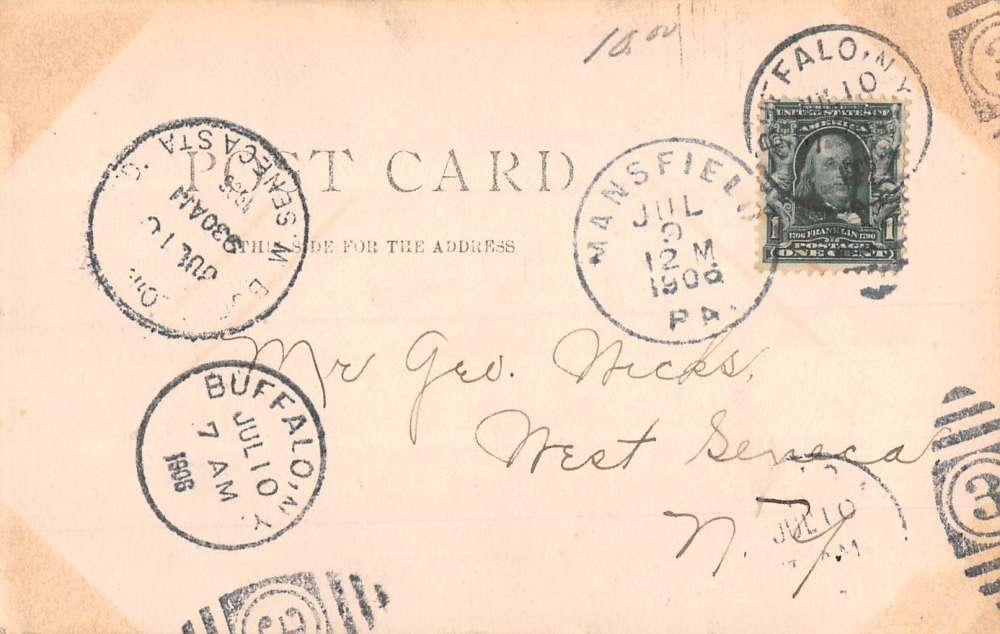 18.00
BUFFALO, N.Y.
JUL 10
UNITED STATES OF
AMERICA
1706 FRANKLIN 1790
1 POSTAGE 1
ONE CENT
MANSFIELD
JUL
9
12 M
1906
PA.
POST CARD
THIS SIDE FOR THE ADDRESS
SENECA STA.
JUL 10
930AM
Mr Geo. Wicks,
West Seneca
N. Y.
BUFFALO, N.Y.
JUL 10
7 AM
1906
JUL 10
AM
3
3
3